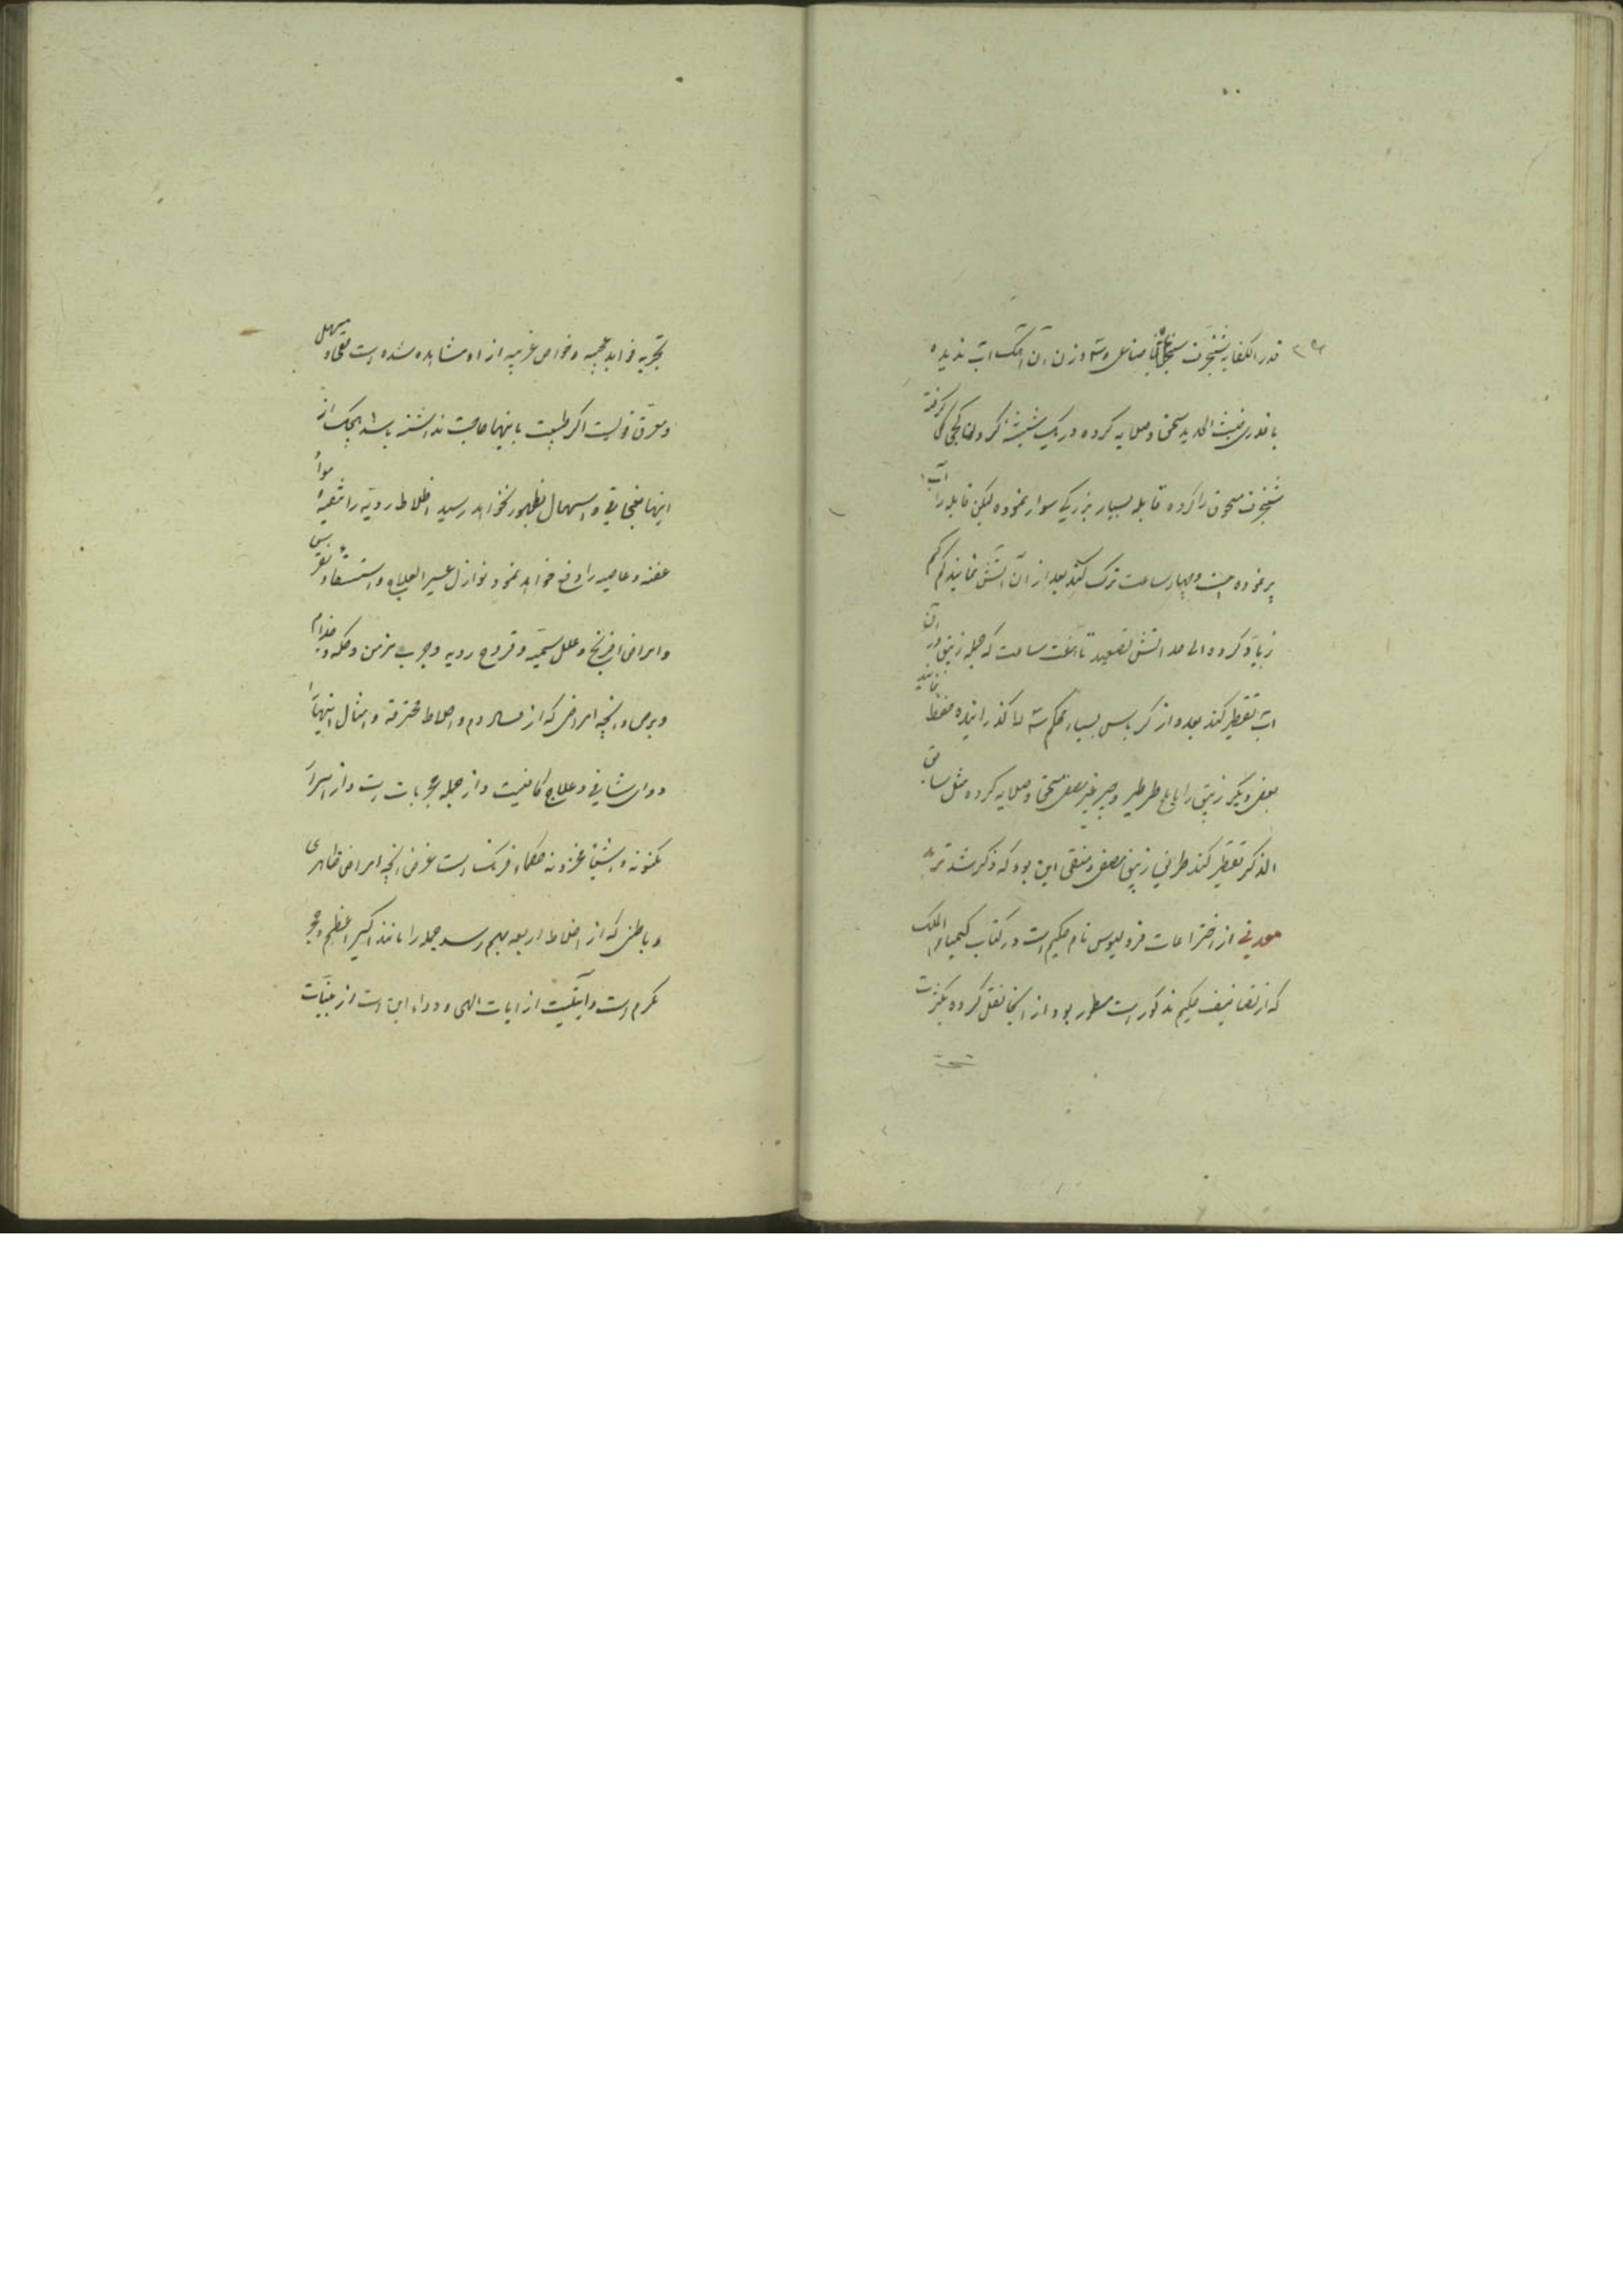 قدر الكفایه شنجرف صناعی و سه وزن آن آهک آب ندیده
با قدری خبث الحدید سحق و صلایه کرده در یک شیشه کردن کجی گل گرفته
شنجرف مسحوق را کرده قابله بسیار بزرگی سوار نموده لیکن قابله را آب
پر نموده بیست و چهار ساعت ترک کند بعد از آن آتش نمایند کم کم
زیاد کرده الی حد آتش تصعید تا هفت ساعت که جمله زیبق در آن
آب تقطیر کند بعده از کرباس بسیار محکم سه لا گذرانیده حفظ نمایند
بعض دیگر زیبق را با ملح طرطیر و جیر غیر مطفی سحق و صلایه کرده مثل سابق
الذکر تقطیر کند طریق زیبق مصفی و منقی این بود که ذکر شد تربد
معدنی از اختراعات قرولیوس نام حکیم است در کتاب کیمیاء الملک
که از تصانیف حکیم مذکور است مسطور بود از آنجا نقل کرده بکثرت
تجربه فواید عجیبه و خواص غریبه از او مشاهده شده است مقی و مسهل
و معرق قویست اگر طبیعت باینها حاجت نداشته باشد هیچیک از
اینها مفجات و اسهال بظهور نخواهد رسید اخلاط ردیه را تنقیه مواد
عفنه و عاصیه را دفع خواهد نمود نوازل عسیر العلاج و استسقاء و نقرس
و امراض افرنج و علل سمیه و قروح ردیه و جرب مزمن و حکه و جذام
و برص و آنچه امراض که از فساد دم و اخلاط محترقه و امثال اینها
دوای شافی و علاج کافیست و از جمله مجربات است و از اسرار
مکنونه و اشیاء مخزونه حکماء فرنگ است غرض آنچه امراض ظاهری
و باطنی که از اخلاط اربعه بهم رسد جمله را مانند اکسیر اعظم و حجر
مکرم است و آیتیست از آیات الهی و دواء این است از مجربات